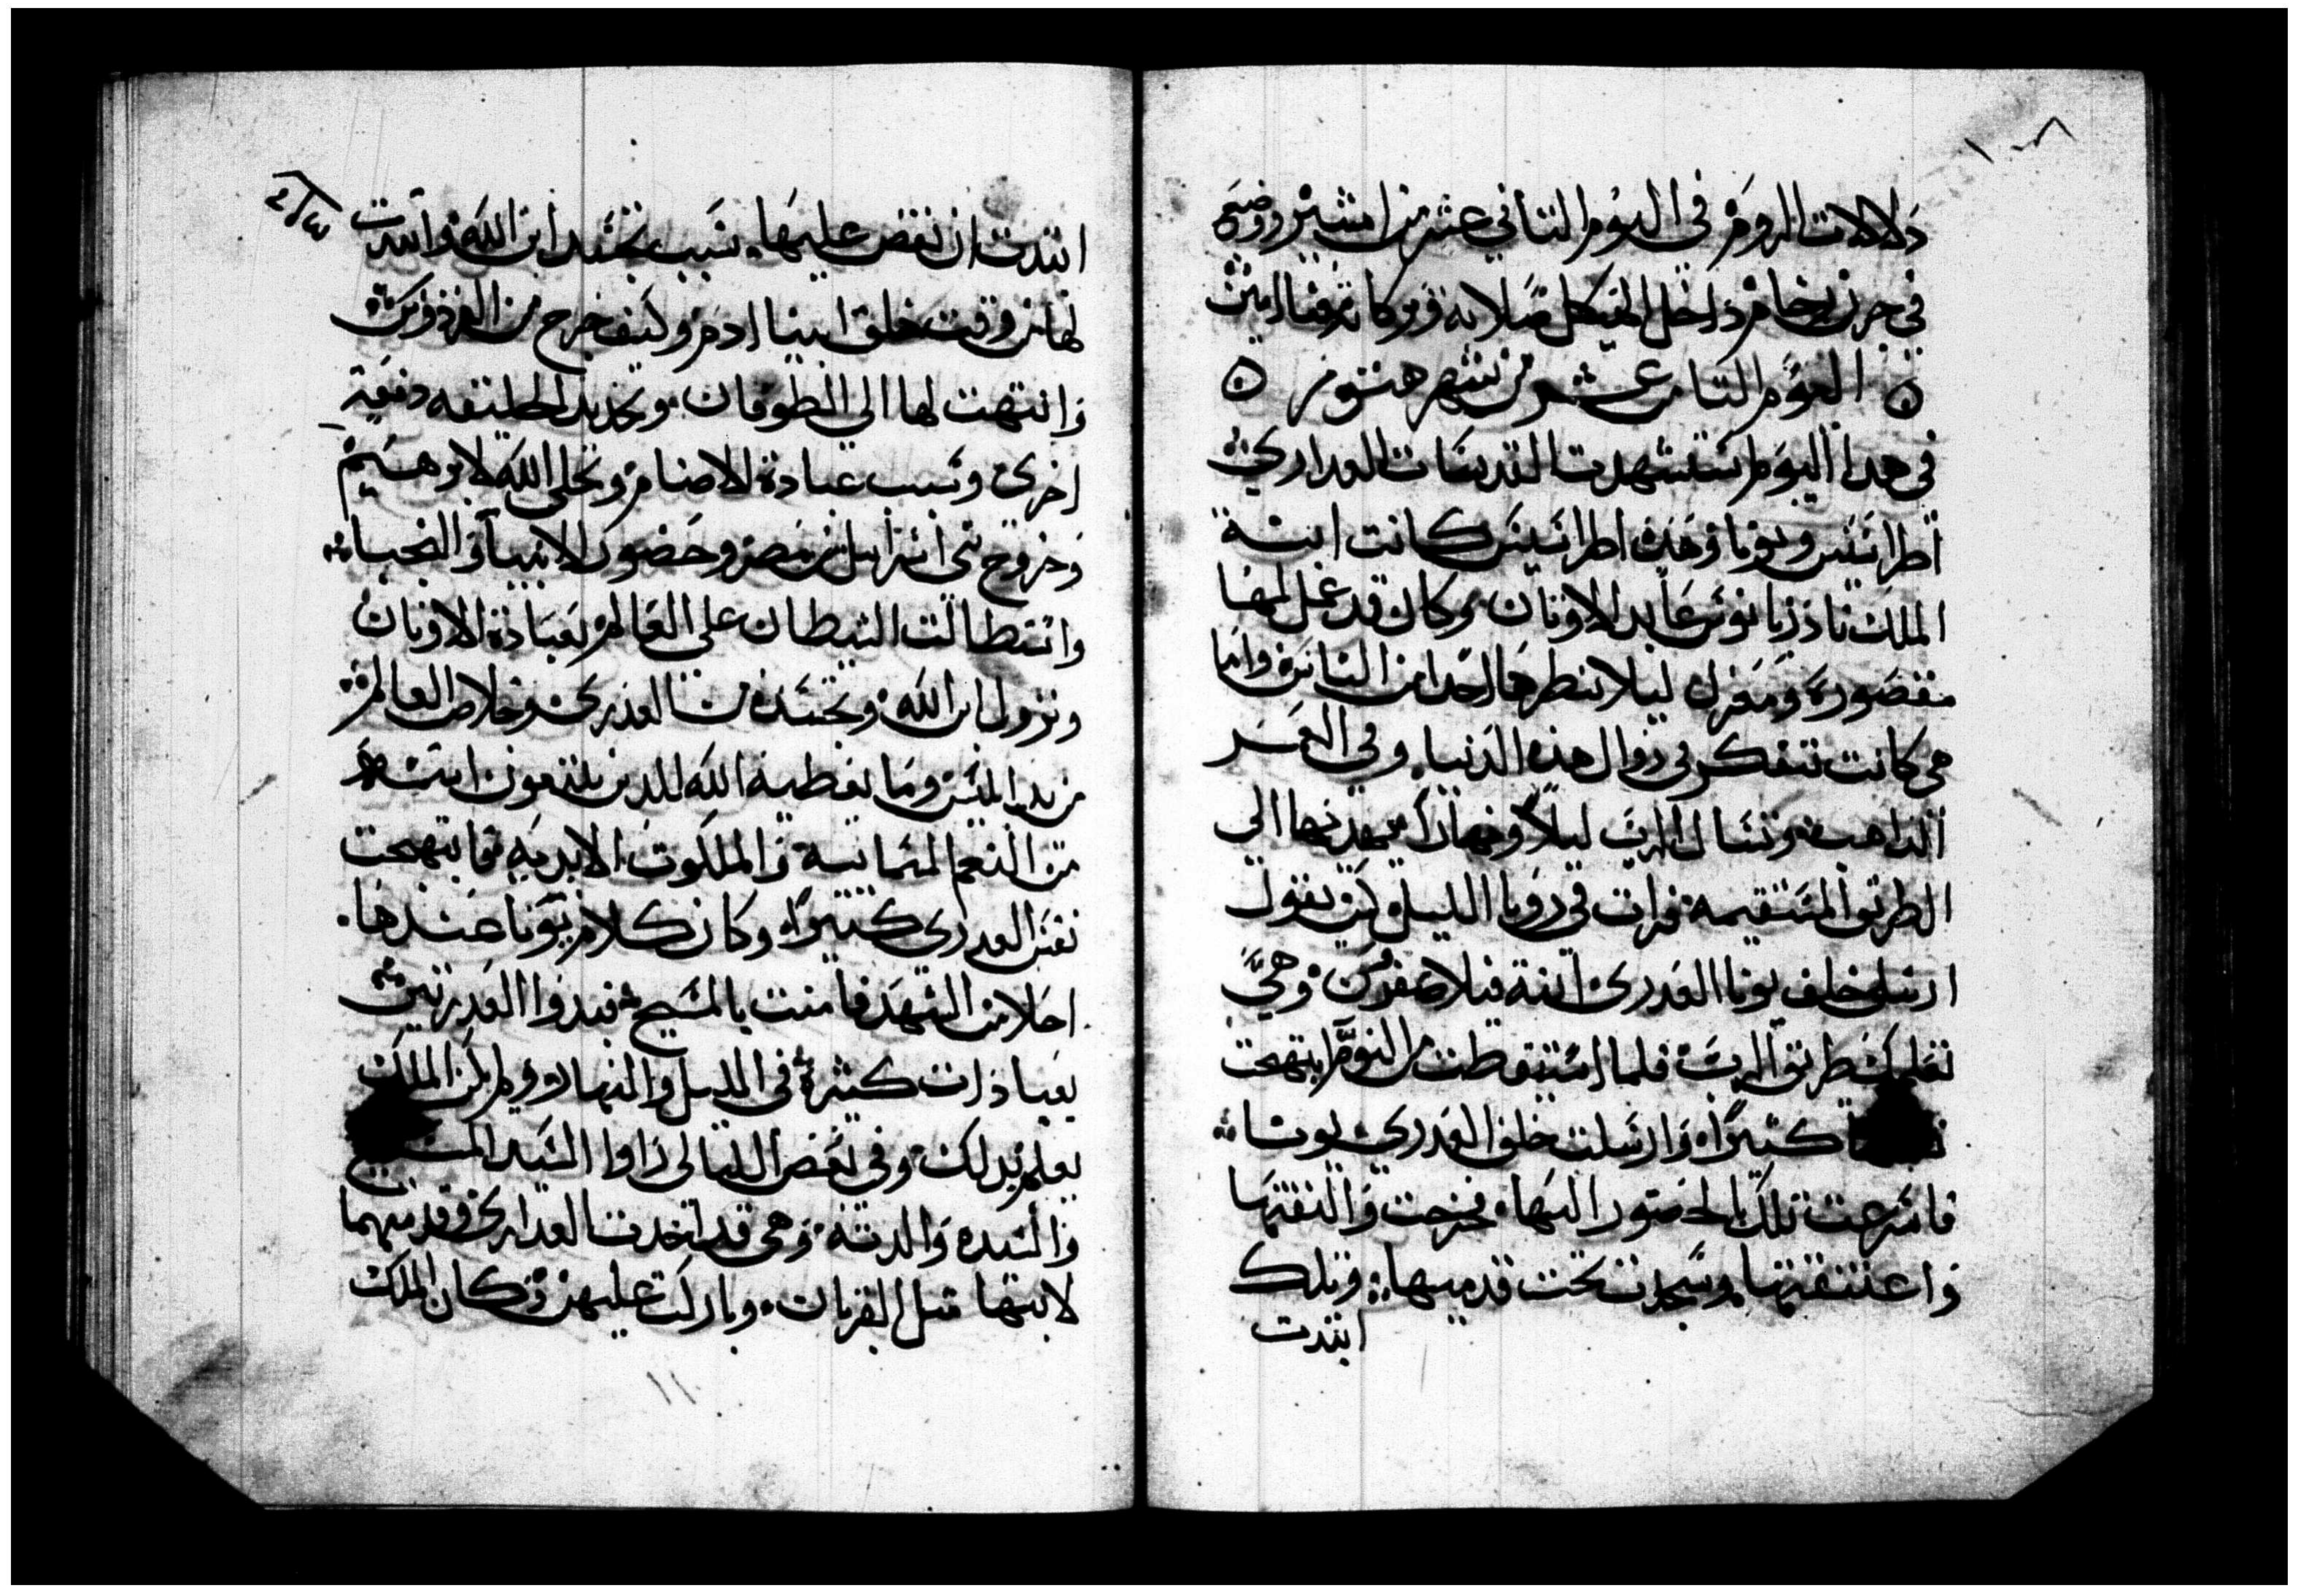 ١٠٨
دلالات الروم في اليوم الثاني عشر من امشير ووضع
في جرن رخام داخل الهيكل صلاته وبركاته معنا امين
اليوم الثامن عشر من شهر هتور
في هدا اليوم استشهدت القديسات العدارى
اطراسيس ويونا وهذه اطراسيس كانت ابنة
الملك عابد الاوثان وكان قد عمل لها
مقصورة ومعزل ليلا ينظرها احد من الناس واما
هي كانت تتفكر في زوال هذه الدنيا وفي العمر
الذاهب وتسال الرب ليلاً ونهاراً يهديها الى
الطريق المستقيمة فرات في رويا الليل من يقول
ارسلي خلف يونا العدرى ابنة فيلاصفرن وهي
تعلمك طريق الرب فلما استيقظت من النوم ابتهجت
كثيراً وارسلت خلف العدرى يونا
فاسرعت تلك بالحضور اليها فخرجت والتقتها
واعتنقتها وسجدت تحت قدميها وتلك
ابتدت
٤/٤
ابتدت ان تقص عليها سبب تجسد ابن الله وابتدت
لها من وقت خلق ابينا ادم وكيف خرج من الفردوس
وانتهت لها الى الطوفان وتجديد الخليقه دفعة
اخرى وسبب عبادة الاصنام وتجلي الله لابرهيم
وخروج بني اسراييل من مصر وحضور الانبيا والنجبا
واستطالت الشيطان على العالم بعبادة الاوثان
ونزول ابن الله وتجسده من العدرى وخلاص العالم
من يد ابليس وما يعطيه الله للدين يتبعون
من النعم السمانية والملكوت الابديه فابتهجت
نفس العدرى كثيراً وكان كلام يونا عندها
احلا من الشهد فامنت بالمسيح فبدوا العدرتين
بعبادات كثيرة في الليل والنهار ولم يكن الملك
يعلم بدلك وفي بعض الليالي راوا السيد المسيح
والسيده والدته وهي قد اخدت العدارى وقدميهما
لابنها مثل القربان وبارك عليهن وكان الملك
١١